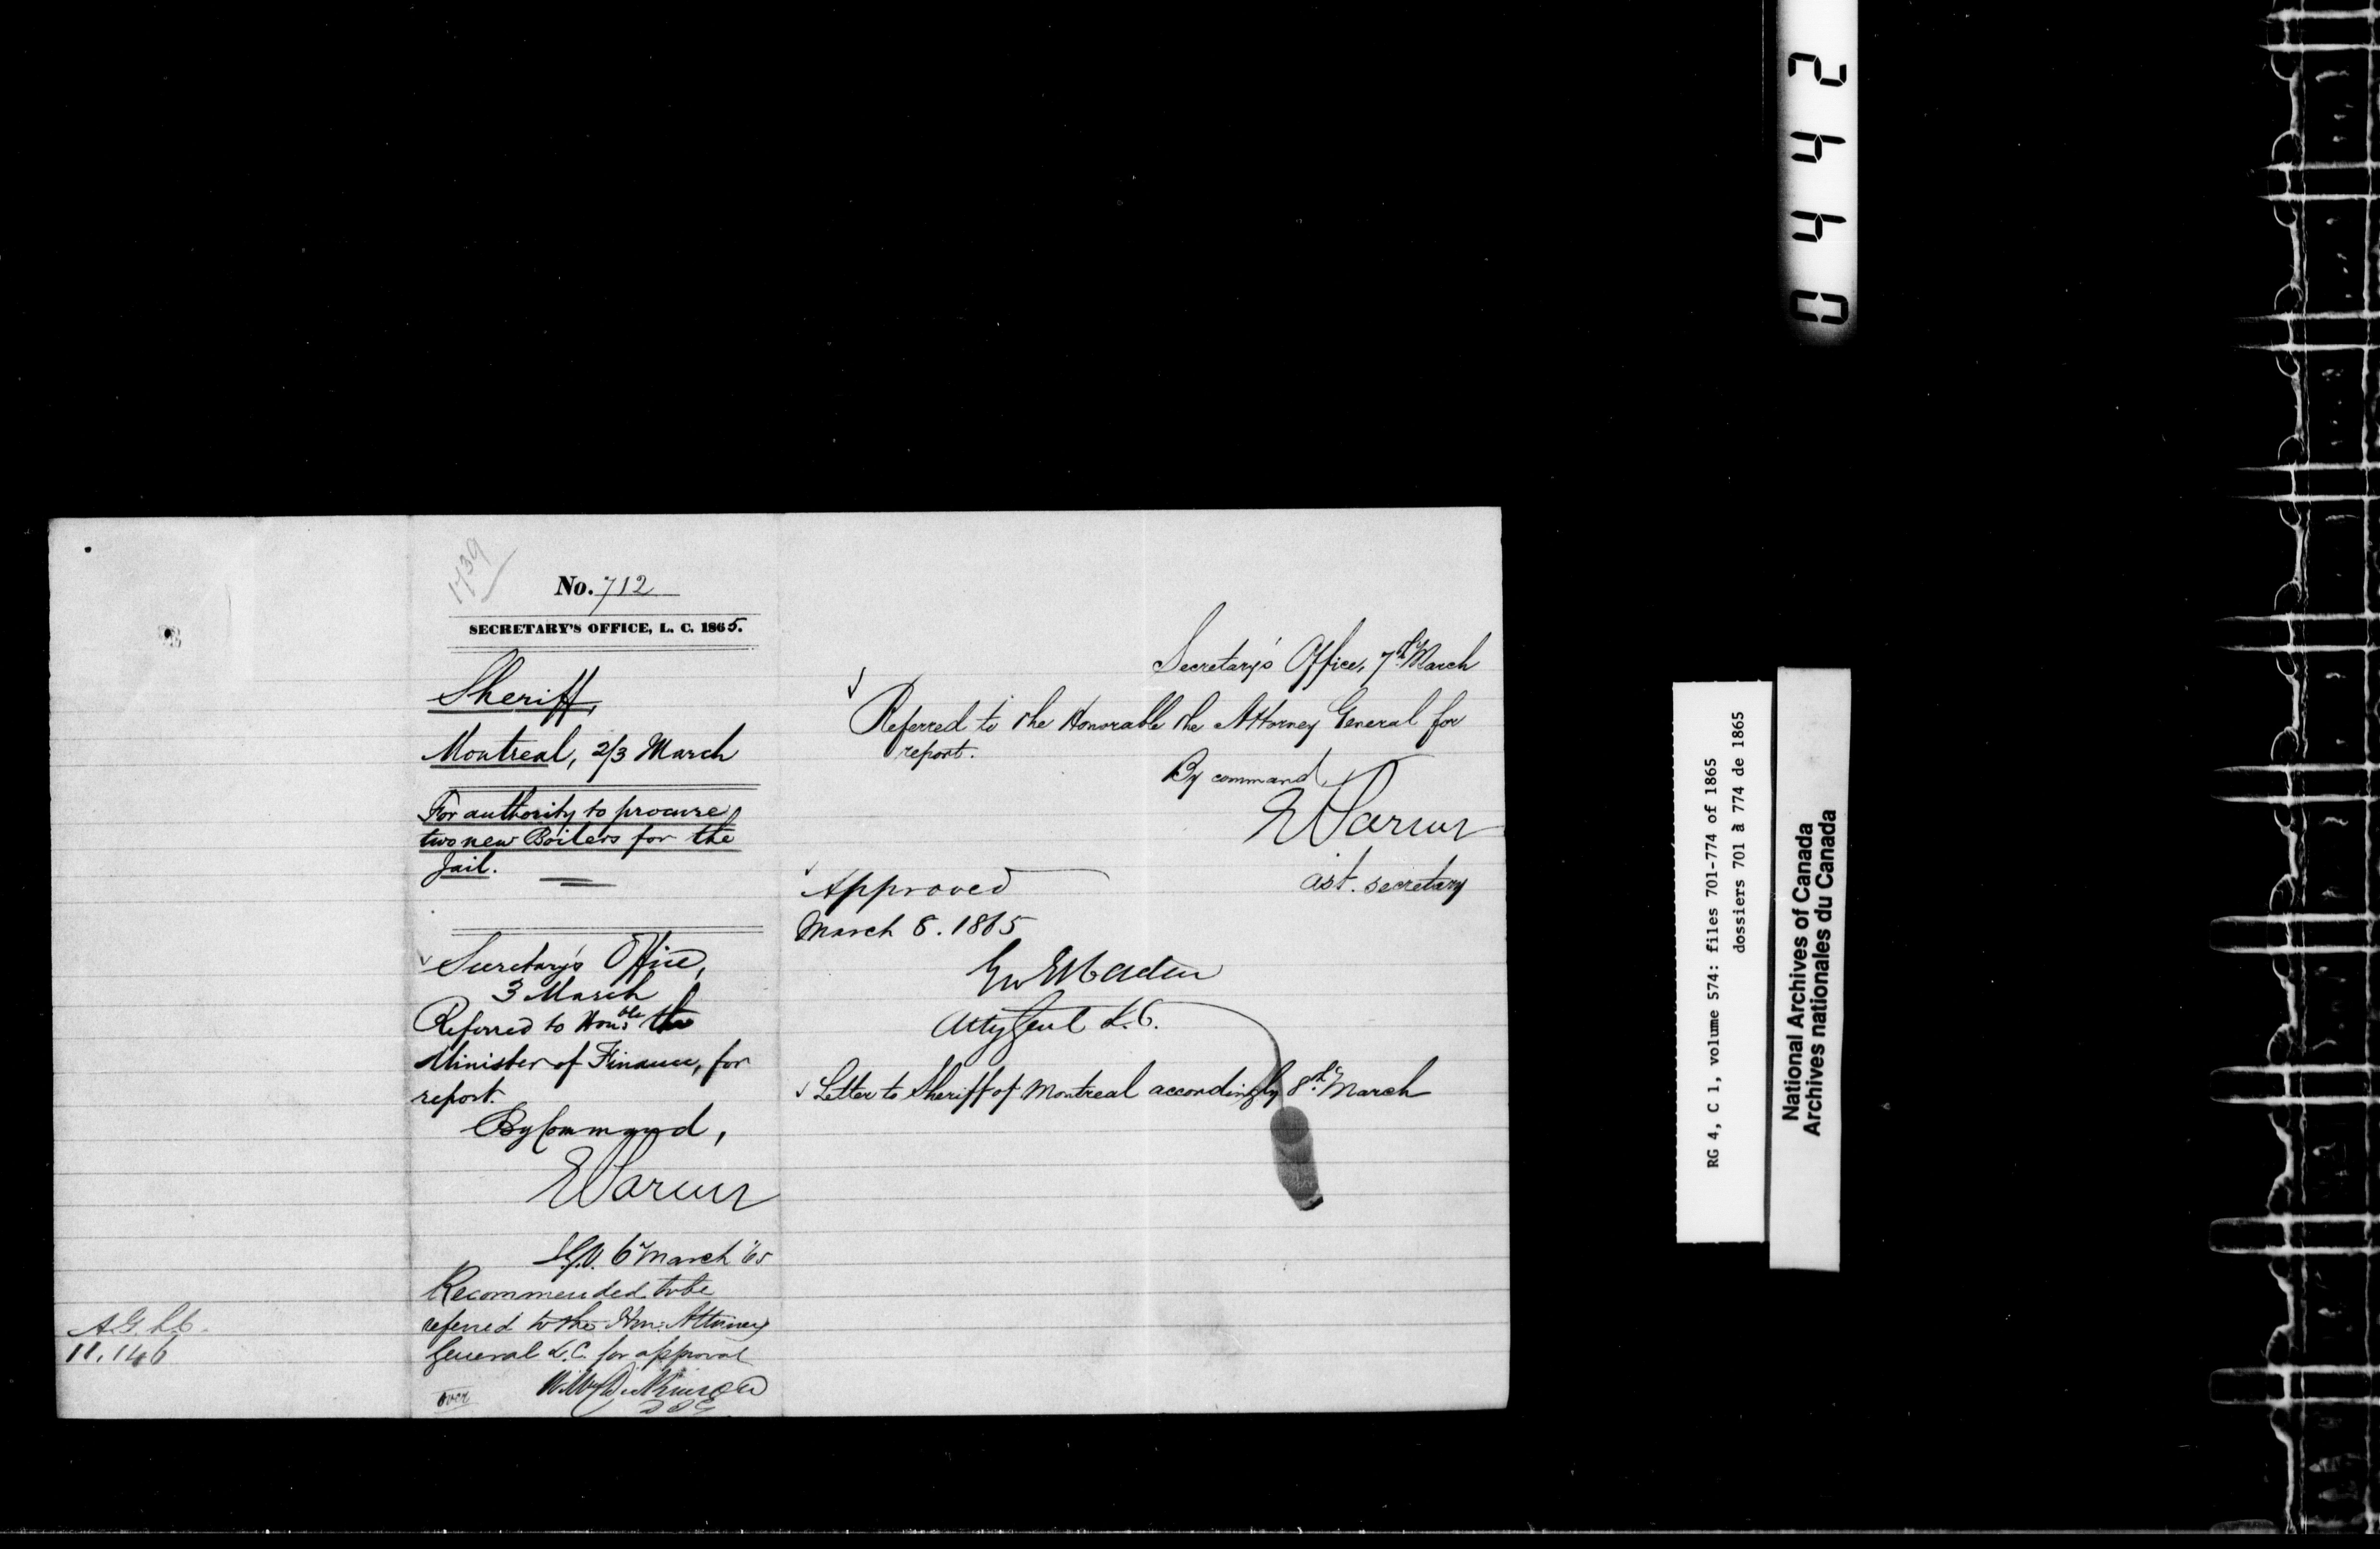 1739
No. 712
SECRETARY'S OFFICE, L. C. 1865.
Sheriff,
Montreal, 2/3 March
For authority to procure
two new Boilers for the
Jail.
Secretary's Office,
3 March
Referred to Honble the
Minister of Finance, for
report.
By Command,
6 March 65
Recommended to be
referred to the Hon: Attorney
General L.C. for approval
over
A.G. L.C.
11.146
Secretary's Office, 7th March
Referred to the Honorable the Attorney General for
report.
By command
ast. secretary
Approved
March 8. 1865
Atty Genl L.C.
Letter to Sheriff of Montreal accordingly 8th March
0442
RG 4, C 1, volume 574: files 701-774 of 1865
dossiers 701 à 774 de 1865
National Archives of Canada
Archives nationales du Canada